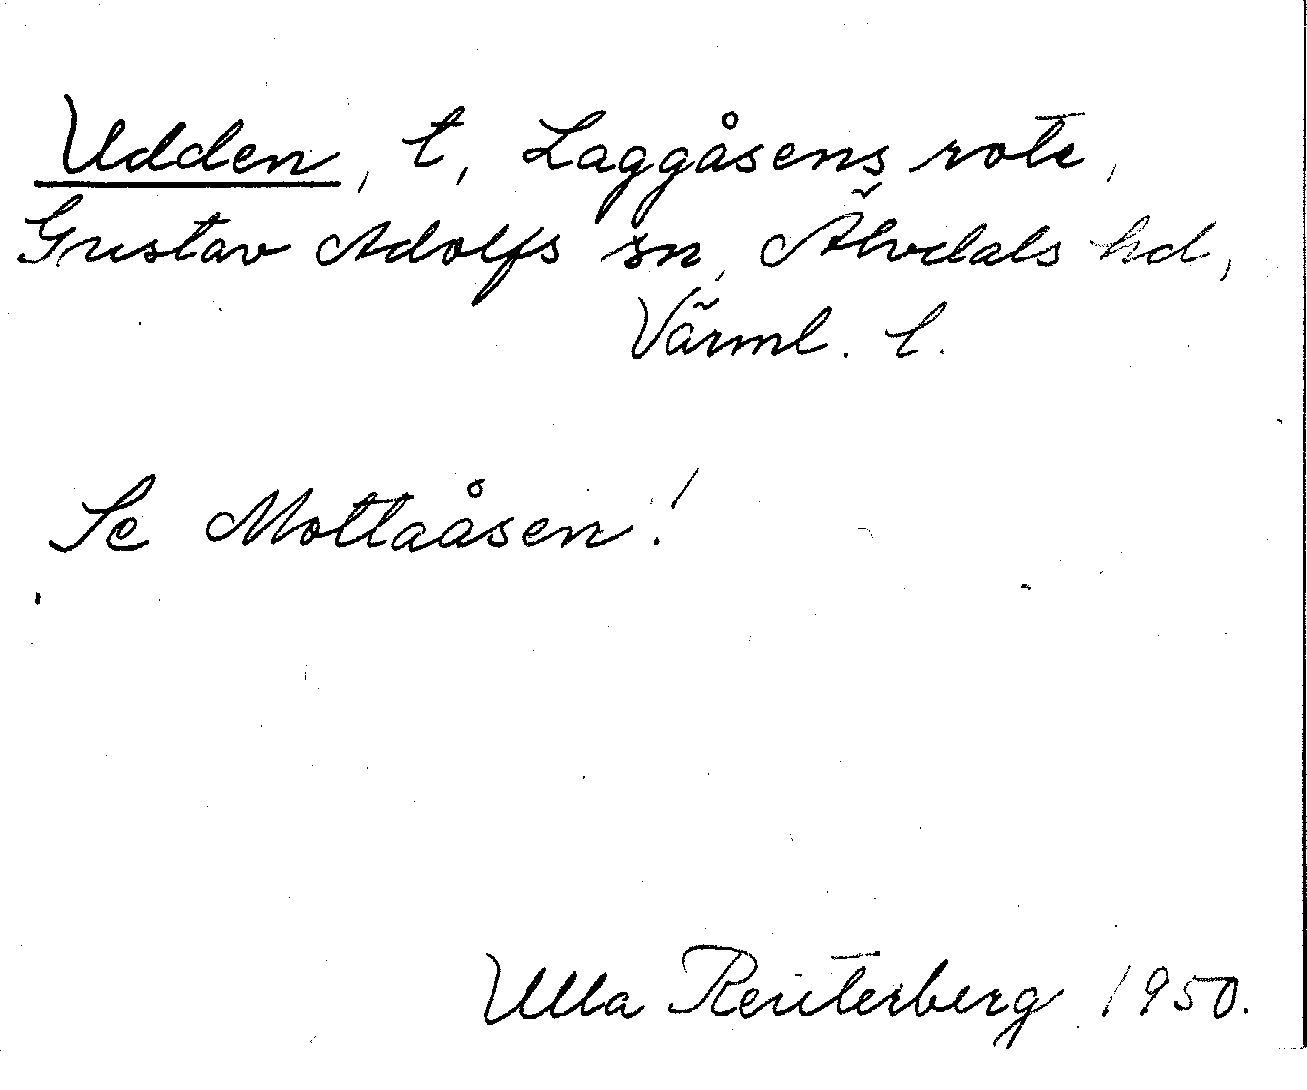 Udden, t, Laggåsens rote,
Gustav Adolfs sn, Älvdals hd,
Värml. l.
Se Mottaåsen!
Ulla Reuterberg 1950.